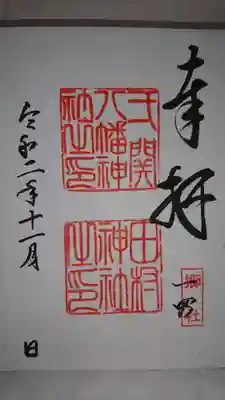 奉拝
郷社
關
八幡神
社之印
田村
神社
之印
令和二年十一月 日